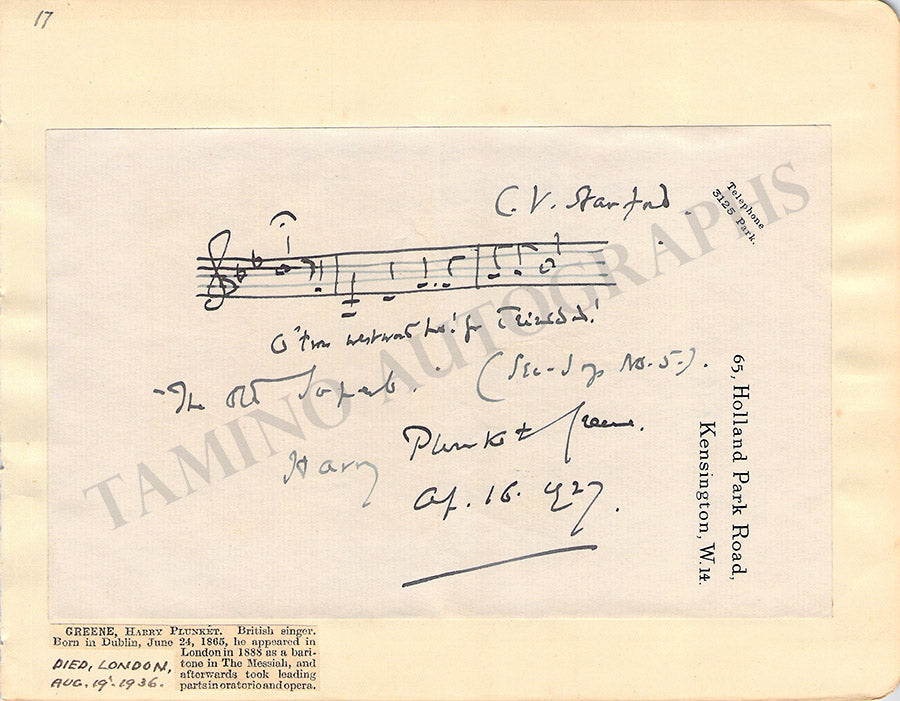 17
C. V. Stanford.
Telephone
3125 Park.
O 'twas westward ho! for Trinidad!
"The Old Superb". (Sea-Songs No. 5).
Harry Plunket Greene.
Ap. 16. 1927.
65, Holland Park Road,
Kensington, W.14.
TAMINO AUTOGRAPHS
GREENE, HARRY PLUNKET. British singer.
Born in Dublin, June 24, 1865, he appeared in
London in 1888 as a bari-
tone in The Messiah, and
afterwards took leading
parts in oratorio and opera.
DIED, LONDON,
AUG. 19. 1936.